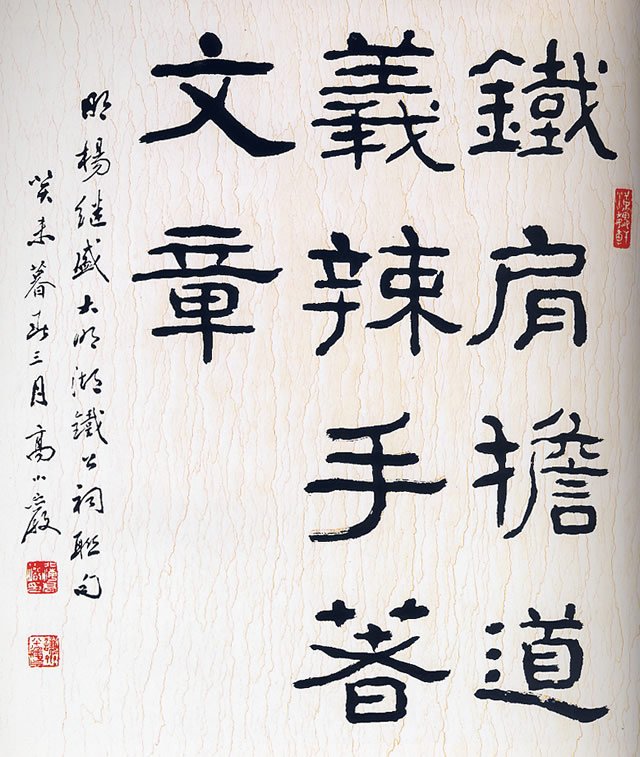 鐵肩擔道
義辣手著
文章
明楊继盛大明湖鐵公祠聯句
癸未暮春三月高小巖